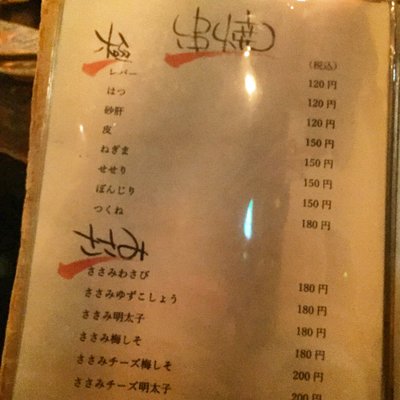 (税込)
レバー 120円
はつ 120円
砂肝 120円
皮 150円
ねぎま 150円
せせり 150円
ぼんじり 150円
つくね 180円
ささみわさび 180円
ささみゆずこしょう 180円
ささみ明太子 180円
ささみ梅しそ 180円
ささみチーズ梅しそ 200円
ささみチーズ明太子 200円